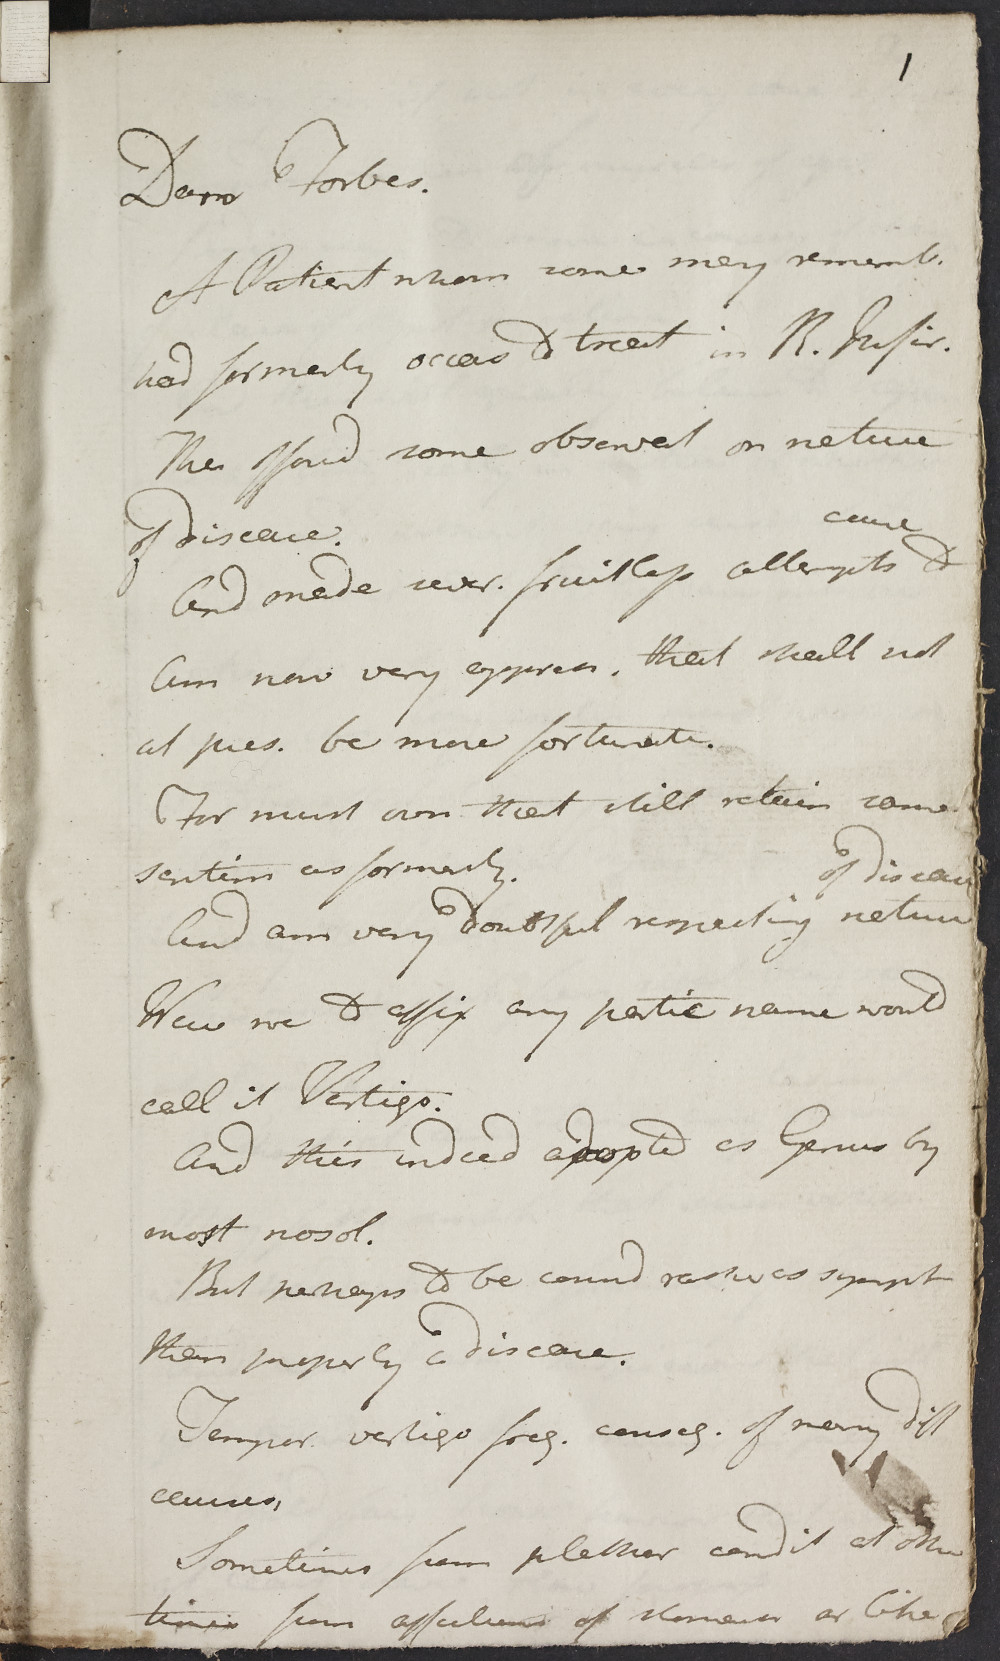 1
Dam Forbes.
A Patient whom some may rememb.
had formerly occas to treat in R. Infir.
Then offerd some observat on nature
of disease.
cure
And made sever. fruitless attempts to
Am now very appreh. that shall not
at pres. be more fortunate.
For must own that still retain same
sentim as formerly.
of diseas
And am very doubtful respecting nature
Were we to affix any partic name would
call it Vertigo.
And this indeed adopted as Genus by
most nosol.
But perhaps to be consid rather as sympt
than properly a disease.
Tempor. vertigo freq. conseq. of many diff
causes,
Sometimes from plethor condit at other
times from affections of stomach or like